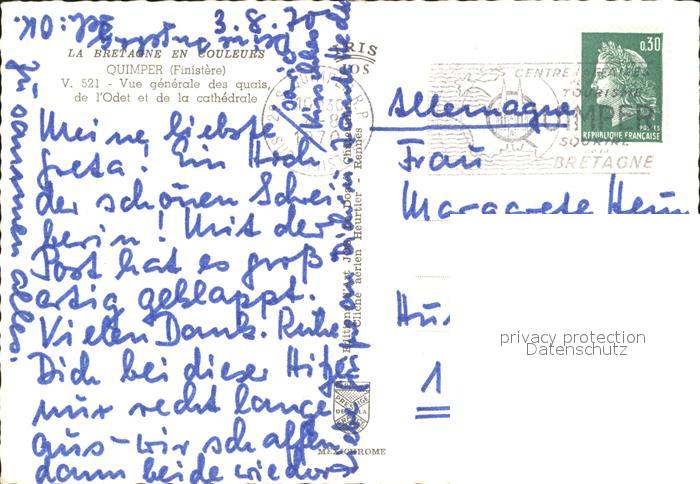 LA BRETAGNE EN COULEURS
QUIMPER (Finistère)
V. 521 - Vue générale des quais,
de l'Odet et de la cathédrale
3.8.70
Meine liebste
Greta! Ein Hoch
der schönen Schrei
berin! Mit der
Post hat es groß
artig geklappt.
Vielen Dank. Ruhe
Dich bei dieser Hitze
nur recht lange
aus - wir schaffen
dann beide wieder
zusammen alles.
CENTRE
TOURISME
QUIMPER
SOURIRE
BRETAGNE
0,30
POSTES
REPUBLIQUE FRANÇAISE
Allemagne
Frau
Margarete
1
Cliché aérien Heurtier - Rennes
MEXICHROME
privacy protection
Datenschutz